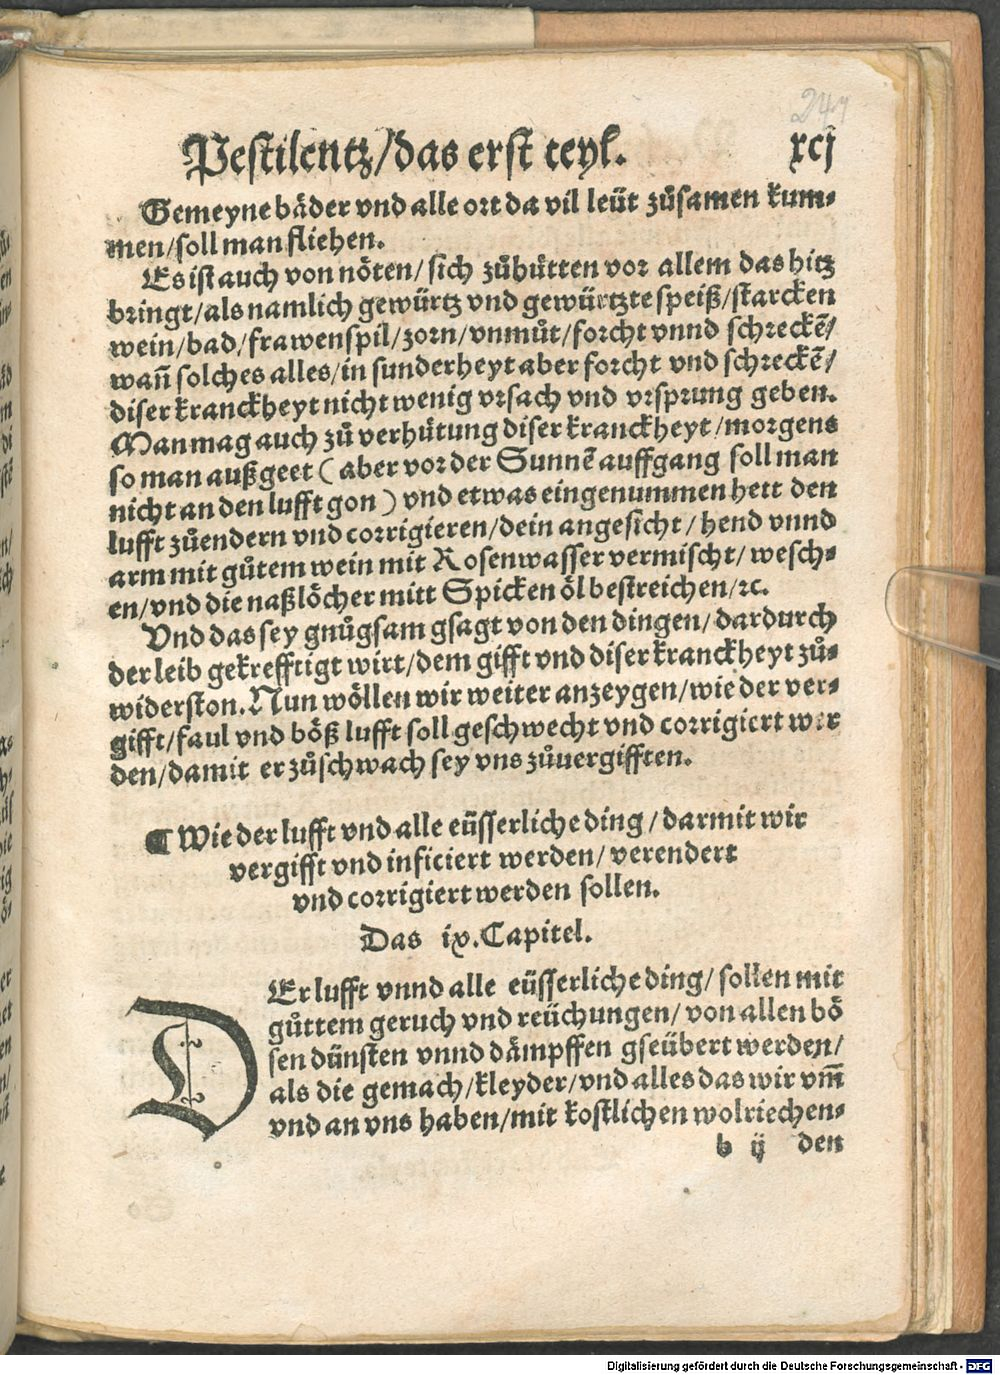 247
Pestilentz/das erst teyl. xcj
Gemeyne bäder vnd alle ort da vil leüt zůsamen kum⸗
men/soll man fliehen.
Es ist auch von nöten/sich zůhütten vor allem das hitz
bringt/als namlich gewürtz vnd gewürtzte speiß/starcken
wein/bad/frawenspil/zorn/vnmůt/forcht vnnd schreckē/
wañ solches alles/in sunderheyt aber forcht vnd schreckē/
diser kranckheyt nicht wenig vrsach vnd vrsprung geben.
Man mag auch zů verhütung diser kranckheyt/morgens
so man außgeet (aber vor der Sunnē auffgang soll man
nicht an den lufft gon) vnd etwas eingenummen hett den
lufft zůendern vnd corrigieren/dein angesicht/hend vnnd
arm mit gůtem wein mit Rosenwasser vermischt/wesch⸗
en/vnd die naßlöcher mitt Spicken öl bestreichen/ꝛc.
Vnd das sey gnůgsam gsagt von den dingen/dardurch
der leib gekrefftigt wirt/dem gifft vnd diser kranckheyt zů⸗
widerston. Nun wöllen wir weiter anzeygen/wie der ver⸗
gifft/faul vnd böß lufft soll geschwecht vnd corrigiert wer
den/damit er zůschwach sey vns zůuergifften.
¶ Wie der lufft vnd alle eüsserliche ding/darmit wir
vergifft vnd inficiert werden/verendert
vnd corrigiert werden sollen.
Das ix. Capitel.
DEr lufft vnnd alle eüsserliche ding/sollen mit
gůttem geruch vnd reüchungen/von allen bö
sen dünsten vnnd dämpffen gseübert werden/
als die gemach/kleyder/vnd alles das wir vm̃
vnd an vns haben/mit kostlichen wolriechen⸗
b ij den
Digitalisierung gefördert durch die Deutsche Forschungsgemeinschaft - DFG